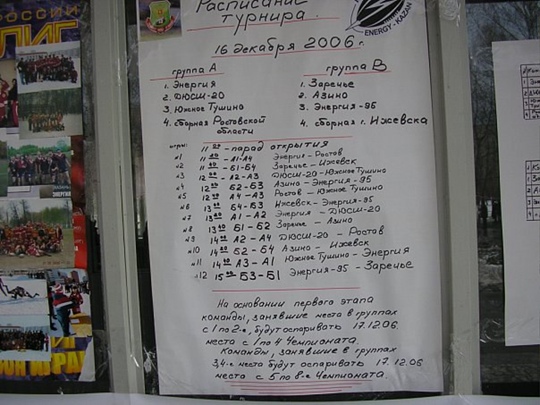 РОССИИ
ЛИГ
Расписание
турнира.
ENERGY-KAZAN
16 декабря 2006г.
группа А
группа В
1. Энергия
1. Заречье
2. ДЮСШ-20
2. Азино
3. Южное Тушино
3. Энергия-95
4. сборная Ростовской области
4. сборная г. Ижевска
игры: 11 00 - парад открытия
N1 11 - А1-А4 Энергия - Ростов
N2 11 40 - Б1-Б4 Заречье - Ижевск
N3 12 00 - А2-А3 ДЮСШ-20 - Южное Тушино
N4 12 - Б2-Б3 Азино - Энергия-95
N5 12 - А4-А3 Ростов - Южное Тушино
N6 13 00 - Б4-Б3 Ижевск - Энергия-95
N7 13 - А1-А2 Энергия - ДЮСШ-20
N8 13 - Б1-Б2 Заречье - Азино
N9 14 00 - А2-А4 ДЮСШ-20 - Ростов
N10 14 - Б2-Б4 Азино - Ижевск
N11 14 40 - А3-А1 Южное Тушино - Энергия
N12 15 00 - Б3-Б1 Энергия-95 - Заречье
На основании первого этапа
команды, занявшие места в группах
с 1 по 2-е, будут оспаривать 17.12.06
места с 1 по 4 Чемпионата.
Команды, занявшие в группах
3,4-е места будут оспаривать 17.12.06
места с 5 по 8-е Чемпионата.